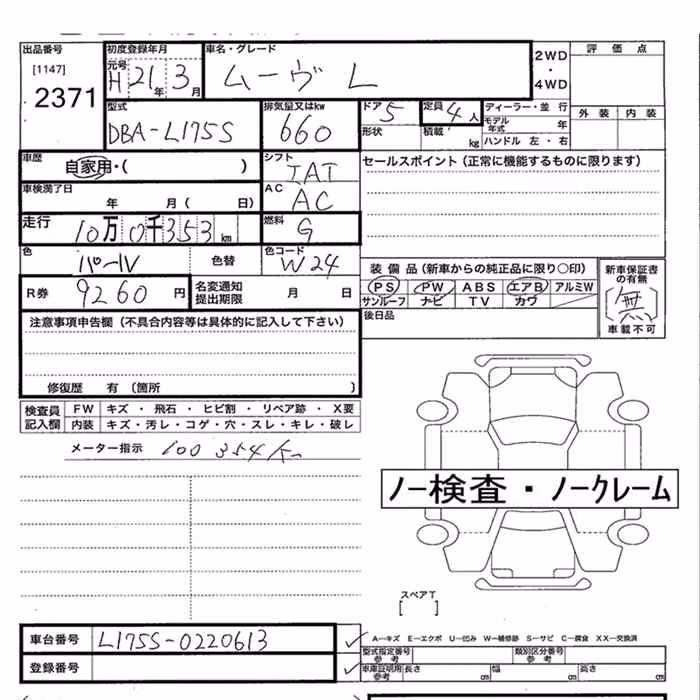 出品番号 初度登録年月 車名・グレード 評価点
[1147] 元号 2WD
2371 H 21年 3月 ムーヴ L ・
4WD
型式 排気量又はkw ドア 5 定員 4人 ディーラー・並 行 外装 内装
DBA-L175S 660 形状 積載 kg モデル年式 年
ハンドル 左・右
車歴 自家用・( ) シフト IAT セールスポイント (正常に機能するものに限ります)
車検満了日 年 月 ( 日) AC AC
走行 10万0千353km 燃料 G
色 パール 色替 色コード W24 装備品 (新車からの純正品に限り○印) 新車保証書の有無
R券 9260円 名変通知提出期限 月 日 PS PW ABS エアB アルミW [無]
サンルーフ ナビ TV カワ 車載不可
注意事項申告欄 (不具合内容等は具体的に記入して下さい) 後日品
修復歴 有 (箇所 )
検査員 FW キズ ・ 飛石 ・ ヒビ割 ・ リペア跡 ・ X要
記入欄 内装 キズ・汚レ・コゲ・穴・スレ・キレ・破レ
メーター指示 100354km
ノー検査・ノークレーム
スペアT
[ ]
車台番号 L175S-0220613 A―キズ E―エクボ U―凹み W―補修跡 S―サビ C―腐食 XX―交換済
登録番号 型式指定番号 参考 類別区分番号 参考
車庫証明用 参考 長さ cm 幅 cm 高さ cm